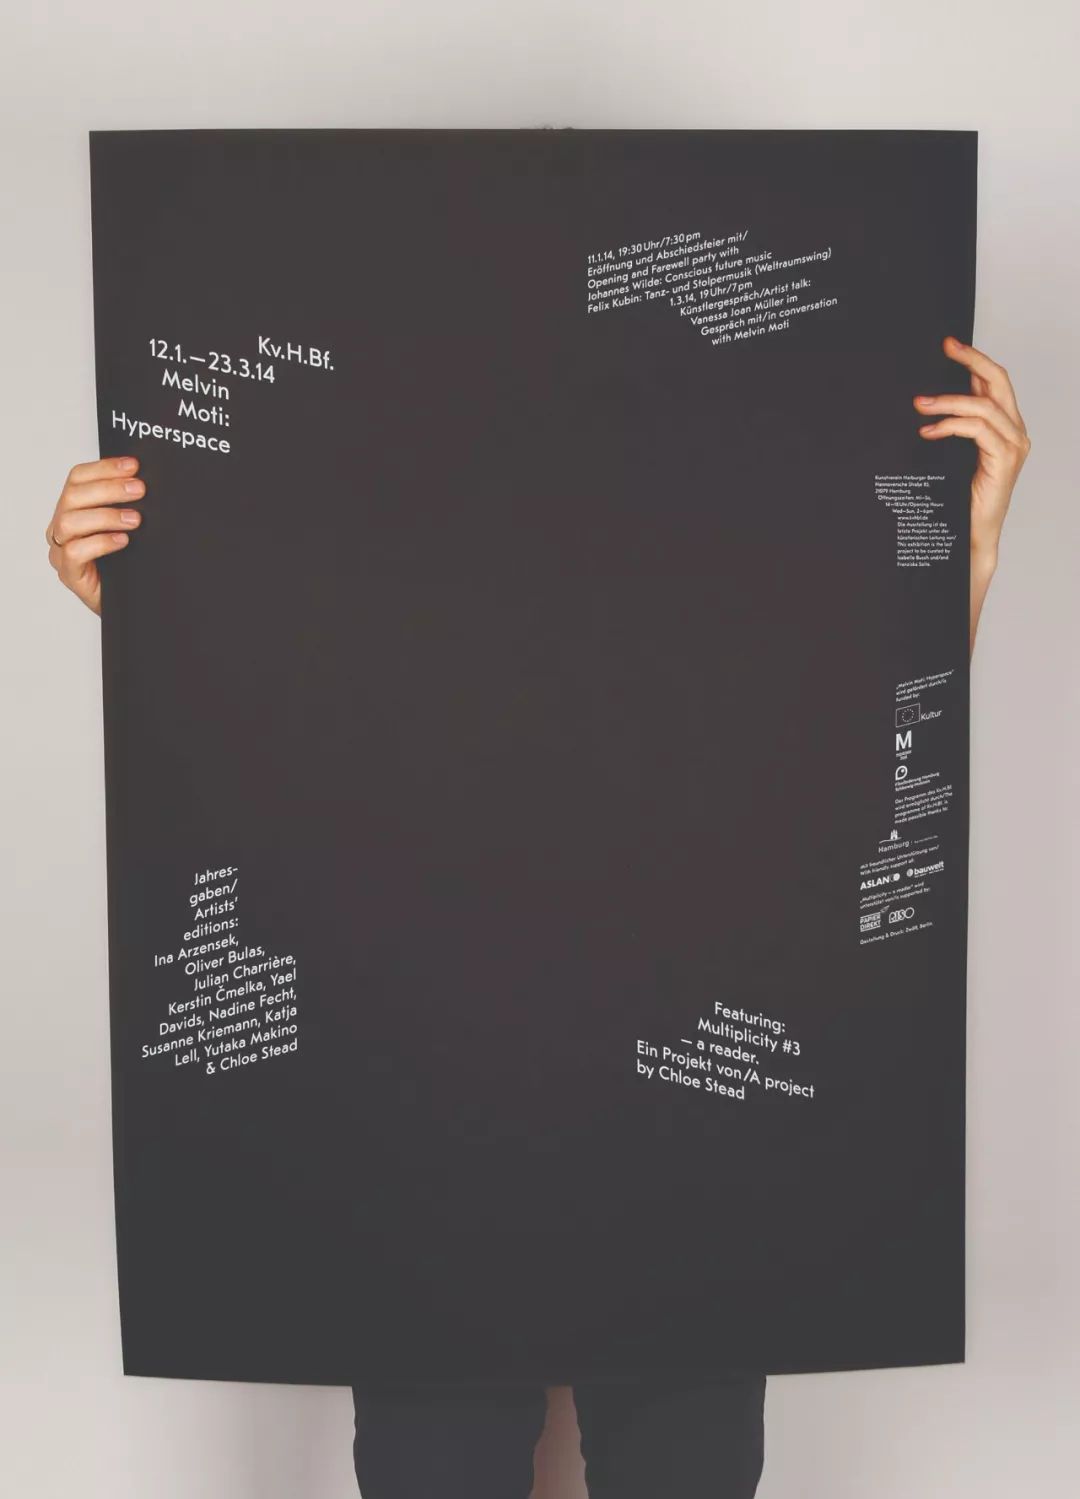 Kv.H.Bf.
12.1.—23.3.14
Melvin
Moti:
Hyperspace
11.1.14, 19:30 Uhr/7:30 pm
Eröffnung und Abschiedsfeier mit/
Opening and Farewell party with
Johannes Wilde: Conscious future music
Felix Kubin: Tanz- und Stolpermusik (Weltraumswing)
1.3.14, 19 Uhr/7 pm
Künstlergespräch/Artist talk:
Vanessa Joan Müller im
Gespräch mit/in conversation
with Melvin Moti
Kunstverein Harburger Bahnhof
Hannoversche Straße 85,
21079 Hamburg
Öffnungszeiten: Mi–So,
14–18 Uhr/Opening Hours:
Wed–Sun, 2–6 pm
www.kvhbf.de
Die Ausstellung ist das
letzte Projekt unter der
künstlerischen Leitung von/
This exhibition is the last
project to be curated by
Isabelle Busch und/and
Franziska Solte.
„Melvin Moti, Hyperspace"
wird gefördert durch/is
funded by:
Kultur
M
Filmförderung Hamburg
Schleswig-Holstein
Das Programm des Kv.H.Bf.
wird ermöglicht durch/The
programme of Kv.H.Bf. is
made possible thanks to:
Hamburg
Mit freundlicher Unterstützung von/
With friendly support of:
ASLAN
bauwelt
„Multiplicity – a reader" wird
unterstützt von/is supported by:
PAPIER
DIREKT
Gestaltung & Druck: Zwölf, Berlin.
Jahres-
gaben/
Artists'
editions:
Ina Arzensek,
Oliver Bulas,
Julian Charrière,
Kerstin Čmelka, Yael
Davids, Nadine Fecht,
Susanne Kriemann, Katja
Lell, Yutaka Makino
& Chloe Stead
Featuring:
Multiplicity #3
— a reader.
Ein Projekt von/A project
by Chloe Stead